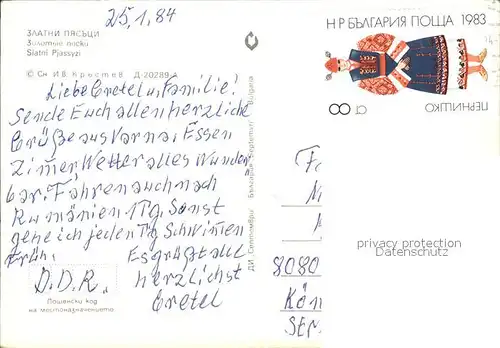 25.1.84
ЗЛАТНИ ПЯСЪЦИ
Золотые пески
Slatni Pjassyzi
© Сн. И В. Кръстев Д-20289-А
Liebe Gretel u. Familie!
Sende Euch allen herzliche
Grüße aus Varna. Essen
Zimer Wetter alles wunder
bar. Fahren auch nach
Rumänien 1 Tg. Sonst
gehe ich jeden Tg Schwimen
Früh. Es grüßt alle
D.D.R. herzlichst
Gretel
Пощенски код
на местоназначението
ДИ „Септември“ България Septemvri Bulgaria
НР БЪЛГАРИЯ ПОЩА 1983
ПЕРНИШКО
8 ст
privacy protection
Datenschutz
8080